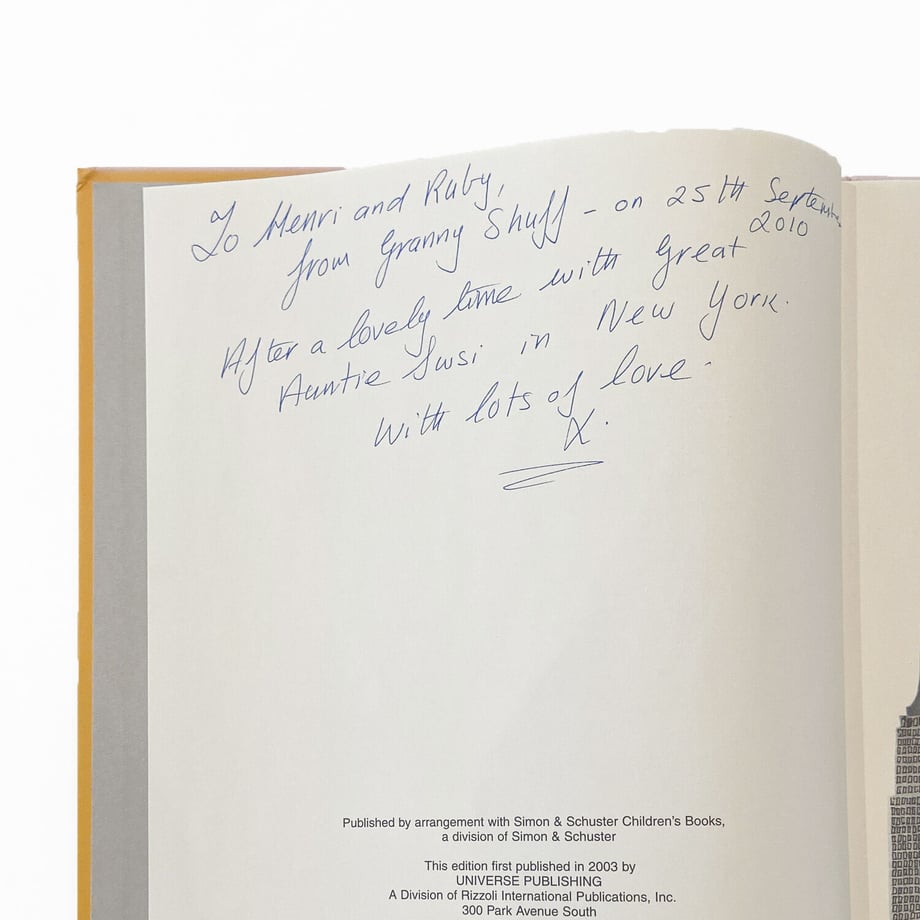 To Henri and Ruby,
from Granny Shuff - on 25th September
2010
After a lovely time with Great
Auntie Susi in New York.
With lots of love.
X.
Published by arrangement with Simon & Schuster Children's Books,
a division of Simon & Schuster
This edition first published in 2003 by
UNIVERSE PUBLISHING
A Division of Rizzoli International Publications, Inc.
300 Park Avenue South